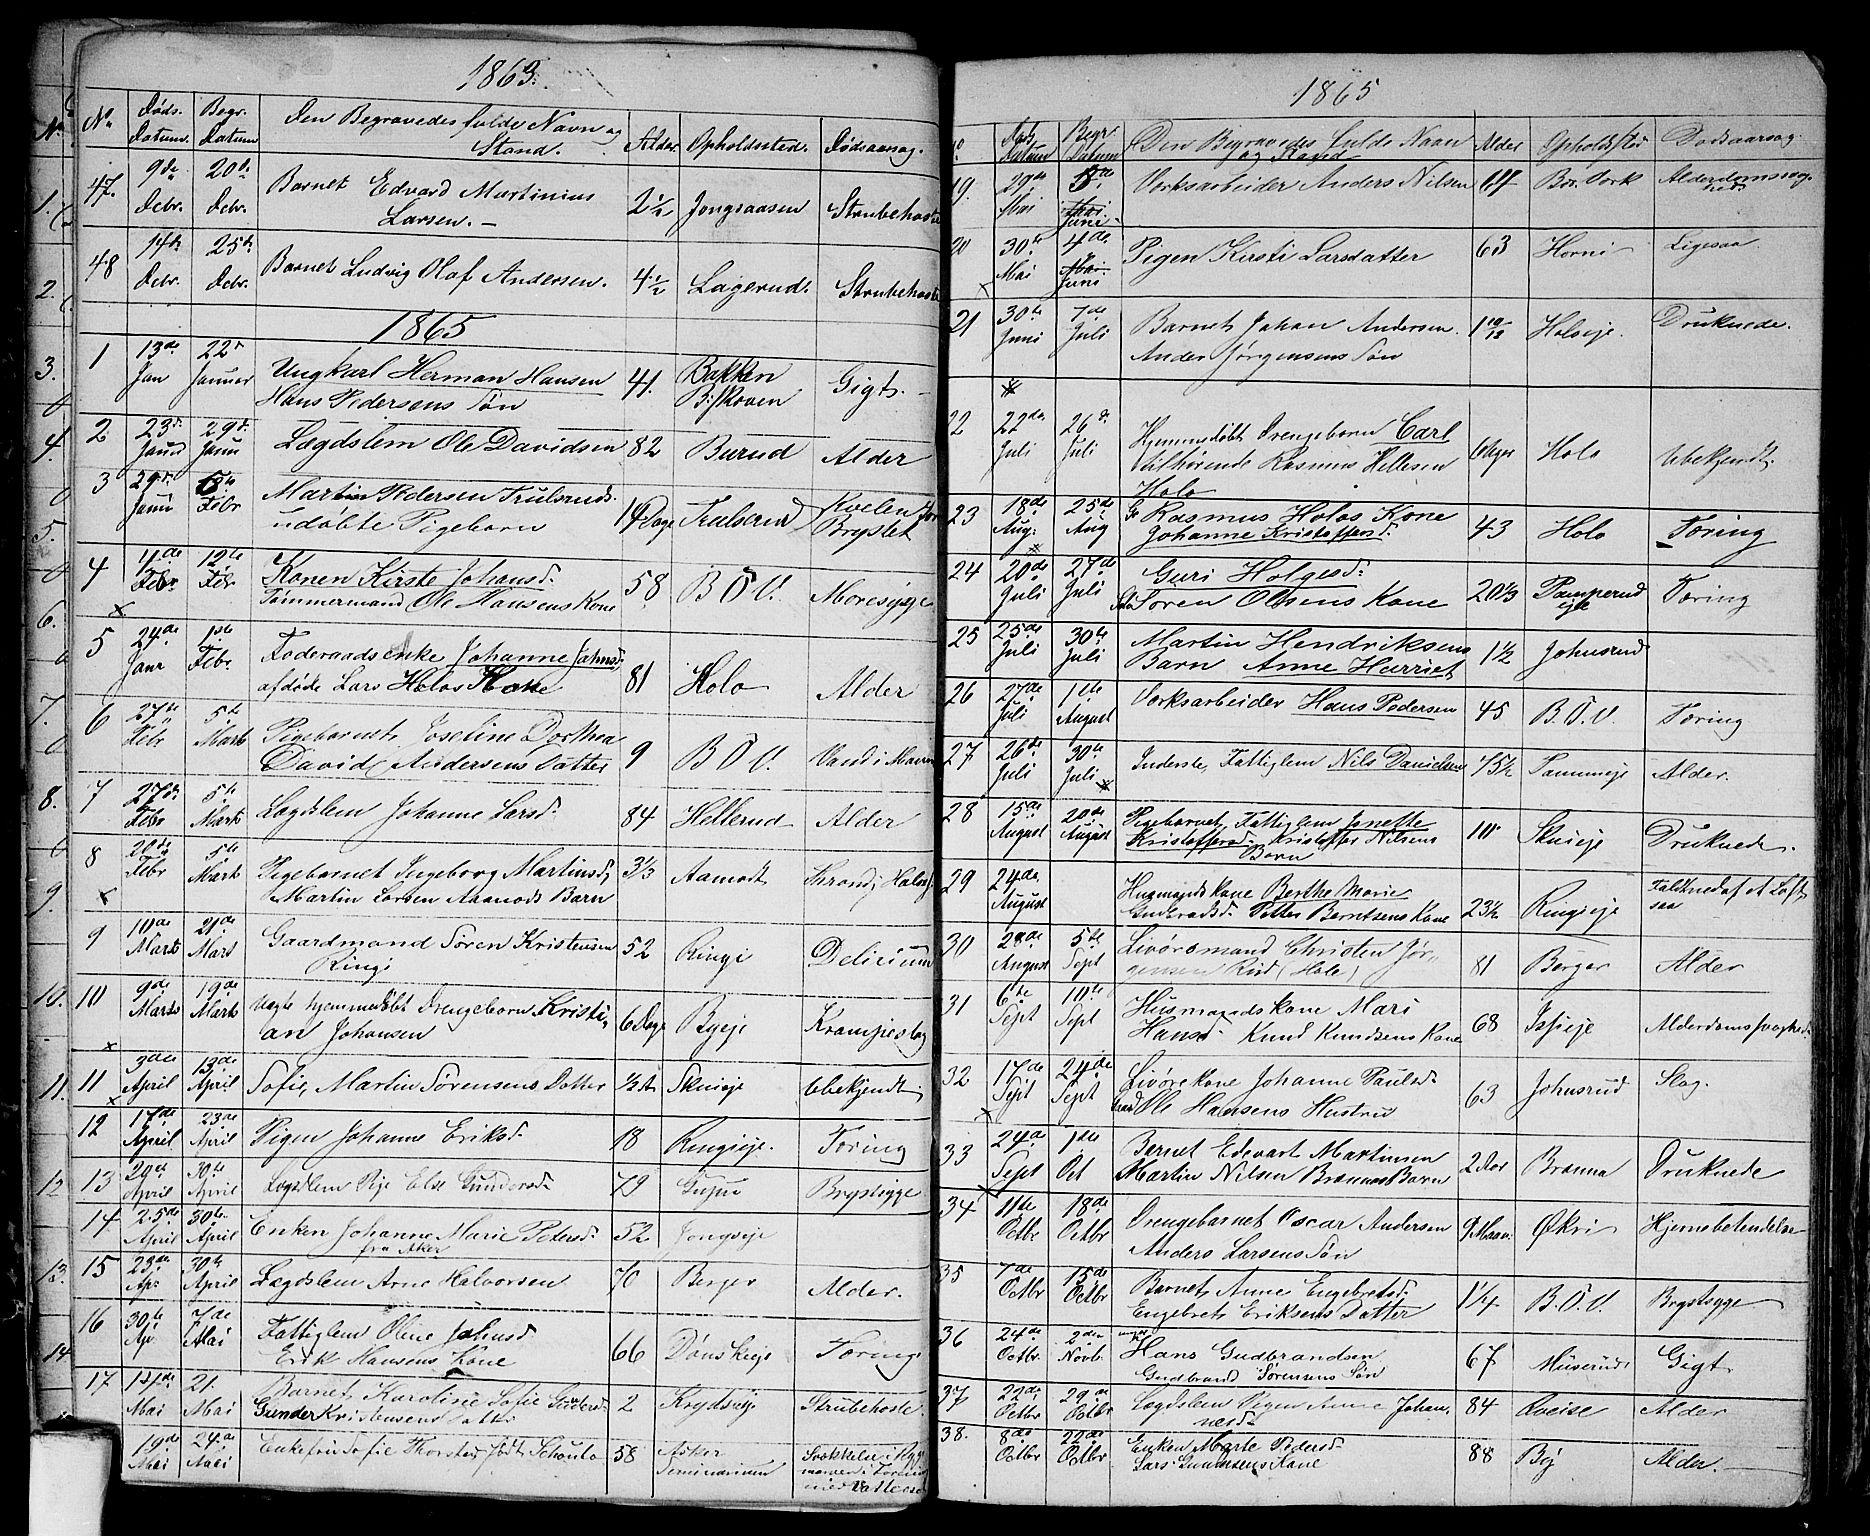 1863.
No. Døds Datum. Begr. Datum Den Begravedes fulde Navn og Stand. Alder Opholdssted. Dødsaarsag.
47. 9de Debr. 20de Debr. Barnet Edvard Martinius
Larsen. 2 1/2 Jongsaasen Strubehoste
48 14de Debr. 25de Debr. Barnet Ludvig Olaf Andersen. 4 1/2 Lagerud. Strubehoste
1865
1 13de Jan 22 Januar Ungkarl Herman Hansen
Hans Pedersens Søn 41. Bakken
B. Skoven Gigt.
2. 23 Janu 29 Janu Lægdslem Ole Davidsen 82 Burud Alder
3 29 Janu Febr Martin Pedersen Trulsruds
udøbte Pigebarn 14 Dage Trulsrud Kvelen for
Brystet
4 4de Febr 12te Febr. Konen Kirste Johansd.
Tømmermand Ole Hansens Kone 58 B. O. V. Moresyge
5 24de Janr 1ste Febr. Føderaadsenke Johanne Johnsd.
afdøde Lars Holos Kone 81 Holo Alder
6 27de Febr 5te Marts Pigebarnet Josefine Dorthea
David Andersens Datter 9 B. O. V. Vand i Maven
7 27de Febr 5te Marts Lægdslem Johanne Larsd. 84 Hellerud Alder
8 20de Febr 5te Marts Pigebarnet Ingeborg Martinsd,
Martin Larsen Aamods Barn 3 1/3 Aamodt
9 10de Marts 21de Mars Gaardmand Søren Kristensen
Ringi 52 Ringi Delirium
10 9de Marts 19de Marts Uægte hjemmedøbt Drengebarn Kristi-
an Johansen 6 Dage Byeje Krampeslag
11 3die April 13de April Sofie, Martin Sørensens Datter 1/2 A Skuieje Ubekjendt.
12 17de April 23de April Pigen Johanne Eriksd. 18 Ringieje. Tæring
13 20de April 30te April Lægdslem Pige Else Gundersd. 79 Brystsyge
14. 25de April 30te April Enken Johanne Marie Petersd.
fra Aker 52 Jongseje
15 23de Apr 30te April Lægdslem Arne Halvorsen 70 Berger Alder.
16 30te Apr 7de Mai Fattiglem Oline Johnsd
Erik Hansens Kone 66 Dønskeeje Tæring
17 Mai 21. Mai Barnet Karoline Sofie Gundersd.
Gunder Kristensens Datter 2 Krydseje Strubehoste.
19de Mai 24de Mai Enkefru Sofie Født Schoulo 58 Asker
Seminarium
1865
No Døds Datum Begr. Datum Den Begravedes fulde Navn og Stand Alder Opholdsted Dødsaarsag.
19. 29de Mai 5de Mai Juni Værksarbeider Anders Nilsen 67 Bær. Værk Alderdomssvag-
hed.
20 30te Mai 4de Mai Juni Pigen Kirsti Larsdatter 63 Horni Ligesaa
21 30te Juni 7de Juli Barnet Johan Andersen.
Anders Jørgensens Søn 1 10/12 Holoeje. Druknede.
22 22de Juli 26de Juli Hjemmedøbt Drengebarn Carl
tilhørende Rasmus Hellesen
Holo 6 Uger Holo Ubekjendt.
23 18de Aug: 25de Aug G. Rasmus Holos Kone
Johanne Kristoffersd. 43 Holo Tæring
24 20de Juli 27de Juli Guri Holgesd.
Søren Olsens Kone 20 1/3 Pamperud
eje Tæring
25 25de Juli 30te Juli Martin Hendriksens
Barn Anne Harriet 1 1/2 Johnsrud
26 27de Juli 1ste August Værksarbeider Hans Pedersen 45 B. O. V. Tæring
27 26de Juli 30te Juli Inderste, Fattiglem Nils Danielsen 75 1/2 Tammeje Alder.
28 15de August 20de August Pigebarnet Fattiglem Janette
Kristoffersd. Kristoffer Nilsens
Barn 10 Skuieje Druknede.
29 24de August Husmandskone Berthe Marie
Gulbrandsd. Petter Berntsens Kone 23 1/2 Ringieje Faldt ned af et Loft
30 August 5te Sept Livørsmand Christen Jør-
gensen Rud (Hole) 81 Berger Alder
31 6te Sept 10de Sept Husmandskone Mari
Hansd. Knud Knudsens Kone 68 Isieje Alderdomssvaghed.
32 17de Sept 24de Sept Livørekone Johanne Paulsd.
Ole Hansens Hustru 63 Johnsrud Slag.
33 24de Sept 1ste Oct Barnet Edevart Martinsen
Martin Nilsen Brænnas Barn 2 Aar Brænna Druknede
34 11te Octbr. 18de Octbr. Drengebarnet Oscar Andersen
Anders Larsens Søn 9 Maan. Økri Hjernebetændelse
35 7de Octbr 15de Octbr. Barnet Anne Engebretsd.
Engebret Eriksens Datter 1 1/4 B. O. V. Brystsyge
36 24de Octbr. 2den Novb. Hans Gudbrandsen
Gudbrand Sørensens Søn 67 Muserud Gigt
37 22de Octbr 29de Octbr Lægdslem Pigen Anne Johan-
nesd. 84 Alder
38. 8de Octbr 22de Octbr Enken Marte Pedersd.
Lars Gunnusens Kone 88 By Alder.